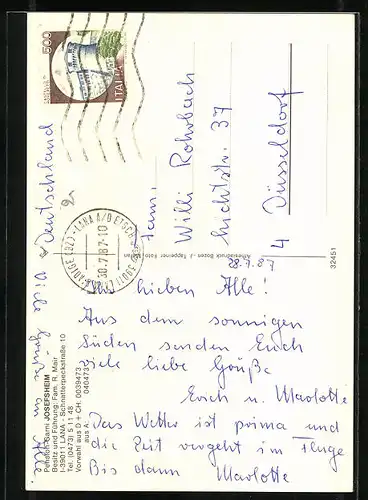 28.7.87
Ihr lieben Alle!
Aus dem sonnigen
Süden senden Euch
viele liebe Grüße
Erich u. Marlotte
Das Wetter ist prima und
die Zeit vergeht im Fluge
Bis dann Marlotte
Viele Grüße an Alle
Fam.
Willi Rohrbach
Lichtstr. 37
4 Düsseldorf
Deutschland
500
ITALIA
LANA A/D ETSCH
30.7.87-10
39011
JOSEFSHEIM
Besitz und Führung: Fam. R. Mair
I-39011 LANA - Schnatterpeckstraße 10
Tel. (0473) 5 11 48
Vorwahl aus D + CH: 0039473
aus A: 040473
Athesiadruck Bozen - J. Tappeiner
32451